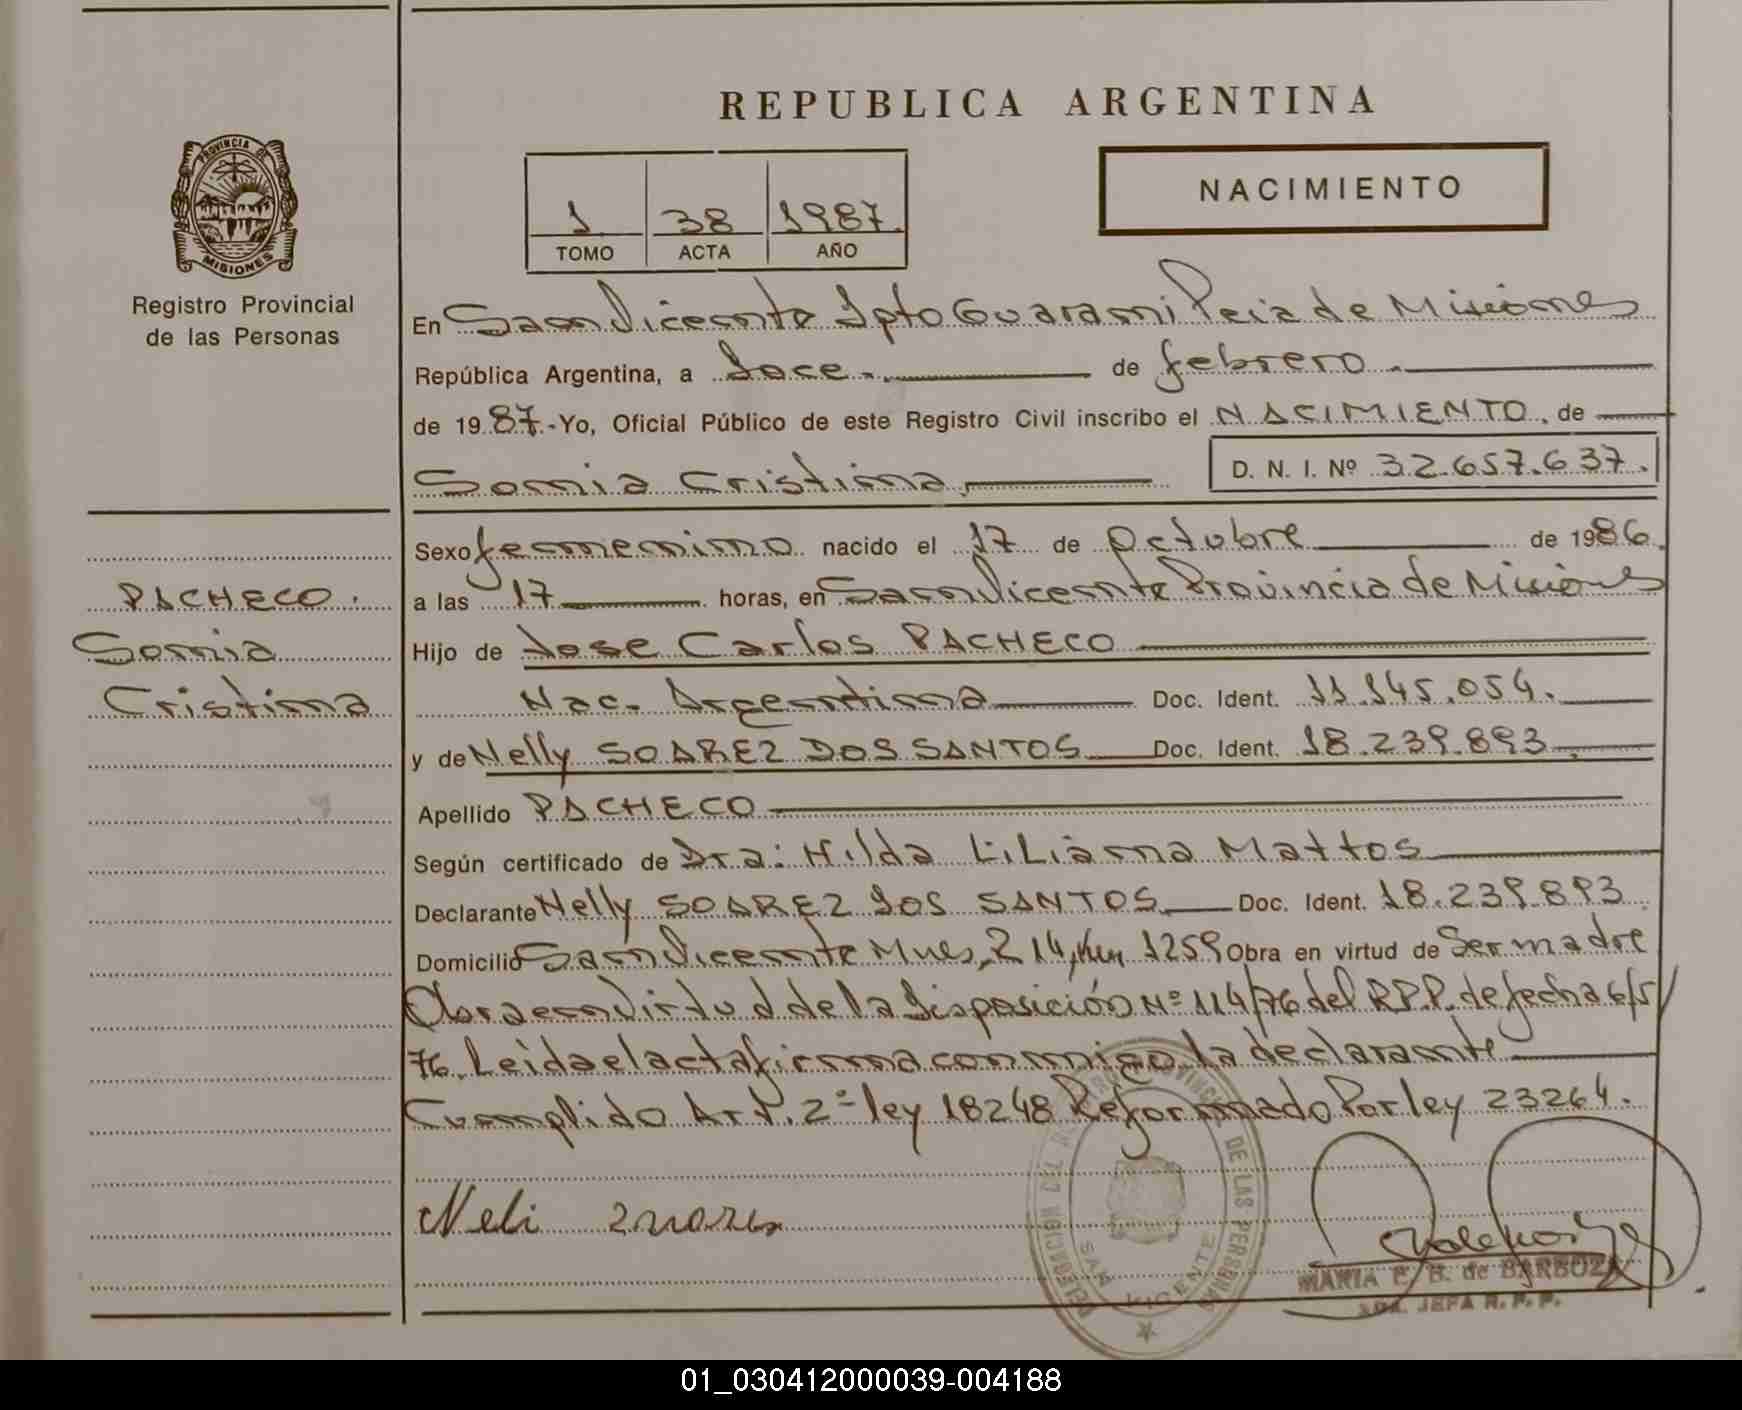 REPUBLICA ARGENTINA
NACIMIENTO
1 38 1987
TOMO ACTA AÑO
PROVINCIA DE
MISIONES
Registro Provincial
de las Personas
En San Vicente Dpto Guarani Pcia de Misiones
República Argentina, a doce.- de febrero.
de 1987.-Yo, Oficial Público de este Registro Civil inscribo el NACIMIENTO. de
Sonia Cristina. D. N. I. Nº 32.657.637.
Sexo femenino nacido el 17 de Octubre de 1986.
a las 17 horas, en San Vicente Provincia de Misiones
Hijo de Jose Carlos PACHECO
Nac. Argentina Doc. Ident. 11.145.054.
y de Nelly SOAREZ DOS SANTOS Doc. Ident. 18.239.893.
Apellido PACHECO
Según certificado de Dra: Hilda Liliana Mattos
Declarante Nelly SOAREZ DOS SANTOS Doc. Ident. 18.239.893
Domicilio San Vicente Mnes, 214, Km 1259 Obra en virtud de Ser madre
Obra en virtud de la Disposición Nº 114/76 del R.P.P. de fecha 6/5/
76. Leida el acta firma conmigo la declarante
Cumplido Art. 2º ley 18248 Reformado Por ley 23264.
PACHECO.
Sonia
Cristina
Neli
DELEGACION DEL REGISTRO PROVINCIAL DE LAS PERSONAS
SAN VICENTE
MARIA E. B. de BARBOZA
JEFA R. P. P.
01_030412000039-004188